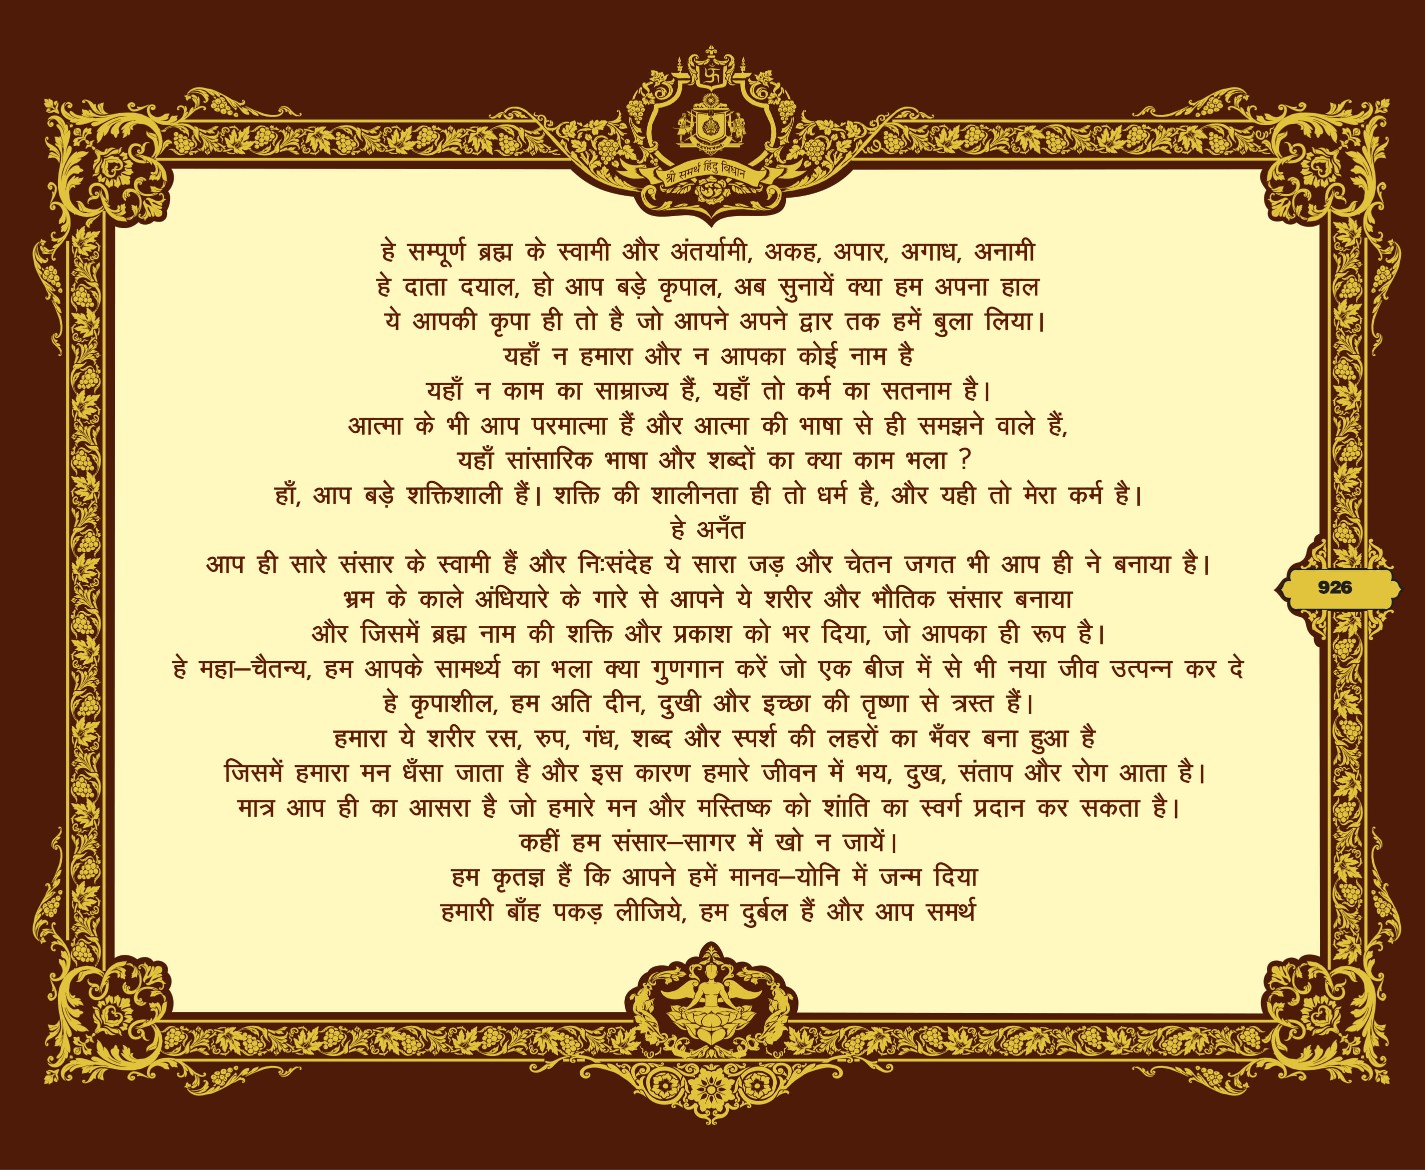 श्री समर्थ हिंदु विधान
हे सम्पूर्ण ब्रह्म के स्वामी और अंतर्यामी, अकह, अपार, अगाध, अनामी
हे दाता दयाल, हो आप बड़े कृपाल, अब सुनायें क्या हम अपना हाल
ये आपकी कृपा ही तो है जो आपने अपने द्वार तक हमें बुला लिया।
यहाँ न हमारा और न आपका कोई नाम है
यहाँ न काम का साम्राज्य हैं, यहाँ तो कर्म का सतनाम है।
आत्मा के भी आप परमात्मा हैं और आत्मा की भाषा से ही समझने वाले हैं,
यहाँ सांसारिक भाषा और शब्दों का क्या काम भला ?
हाँ, आप बड़े शक्तिशाली हैं। शक्ति की शालीनता ही तो धर्म है, और यही तो मेरा कर्म है।
हे अनँत
आप ही सारे संसार के स्वामी हैं और निःसंदेह ये सारा जड़ और चेतन जगत भी आप ही ने बनाया है।
926
भ्रम के काले अंधियारे के गारे से आपने ये शरीर और भौतिक संसार बनाया
और जिसमें ब्रह्म नाम की शक्ति और प्रकाश को भर दिया, जो आपका ही रूप है।
हे महा–चैतन्य, हम आपके सामर्थ्य का भला क्या गुणगान करें जो एक बीज में से भी नया जीव उत्पन्न कर दे
हे कृपाशील, हम अति दीन, दुखी और इच्छा की तृष्णा से त्रस्त हैं।
हमारा ये शरीर रस, रुप, गंध, शब्द और स्पर्श की लहरों का भँवर बना हुआ है
जिसमें हमारा मन धँसा जाता है और इस कारण हमारे जीवन में भय, दुख, संताप और रोग आता है।
मात्र आप ही का आसरा है जो हमारे मन और मस्तिष्क को शांति का स्वर्ग प्रदान कर सकता है।
कहीं हम संसार–सागर में खो न जायें।
हम कृतज्ञ हैं कि आपने हमें मानव–योनि में जन्म दिया
हमारी बाँह पकड़ लीजिये, हम दुर्बल हैं और आप समर्थ